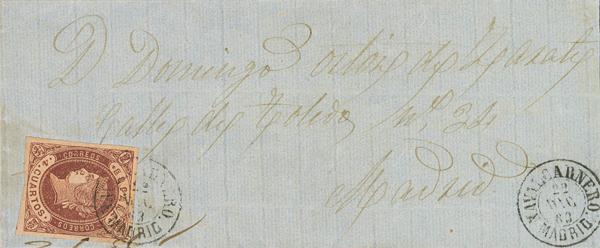 D Domingo ortiz de Zarate
Calle de Toledo Nº 34
Madrid
CORREOS
4 CUARTOS
NAVALCARNERO
22
63
MADRID